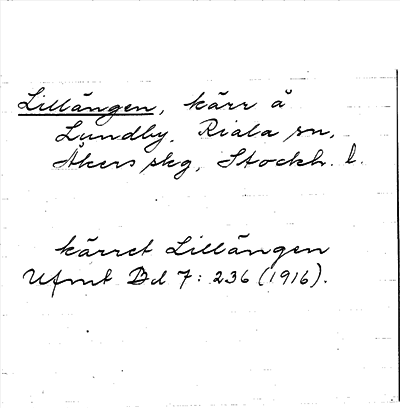 Lillängen, kärr å
Lundby, Riala sn,
Åkers skg, Stockh. l.
kärret Lillängen
Ufmt Bd 7: 236 (1916).